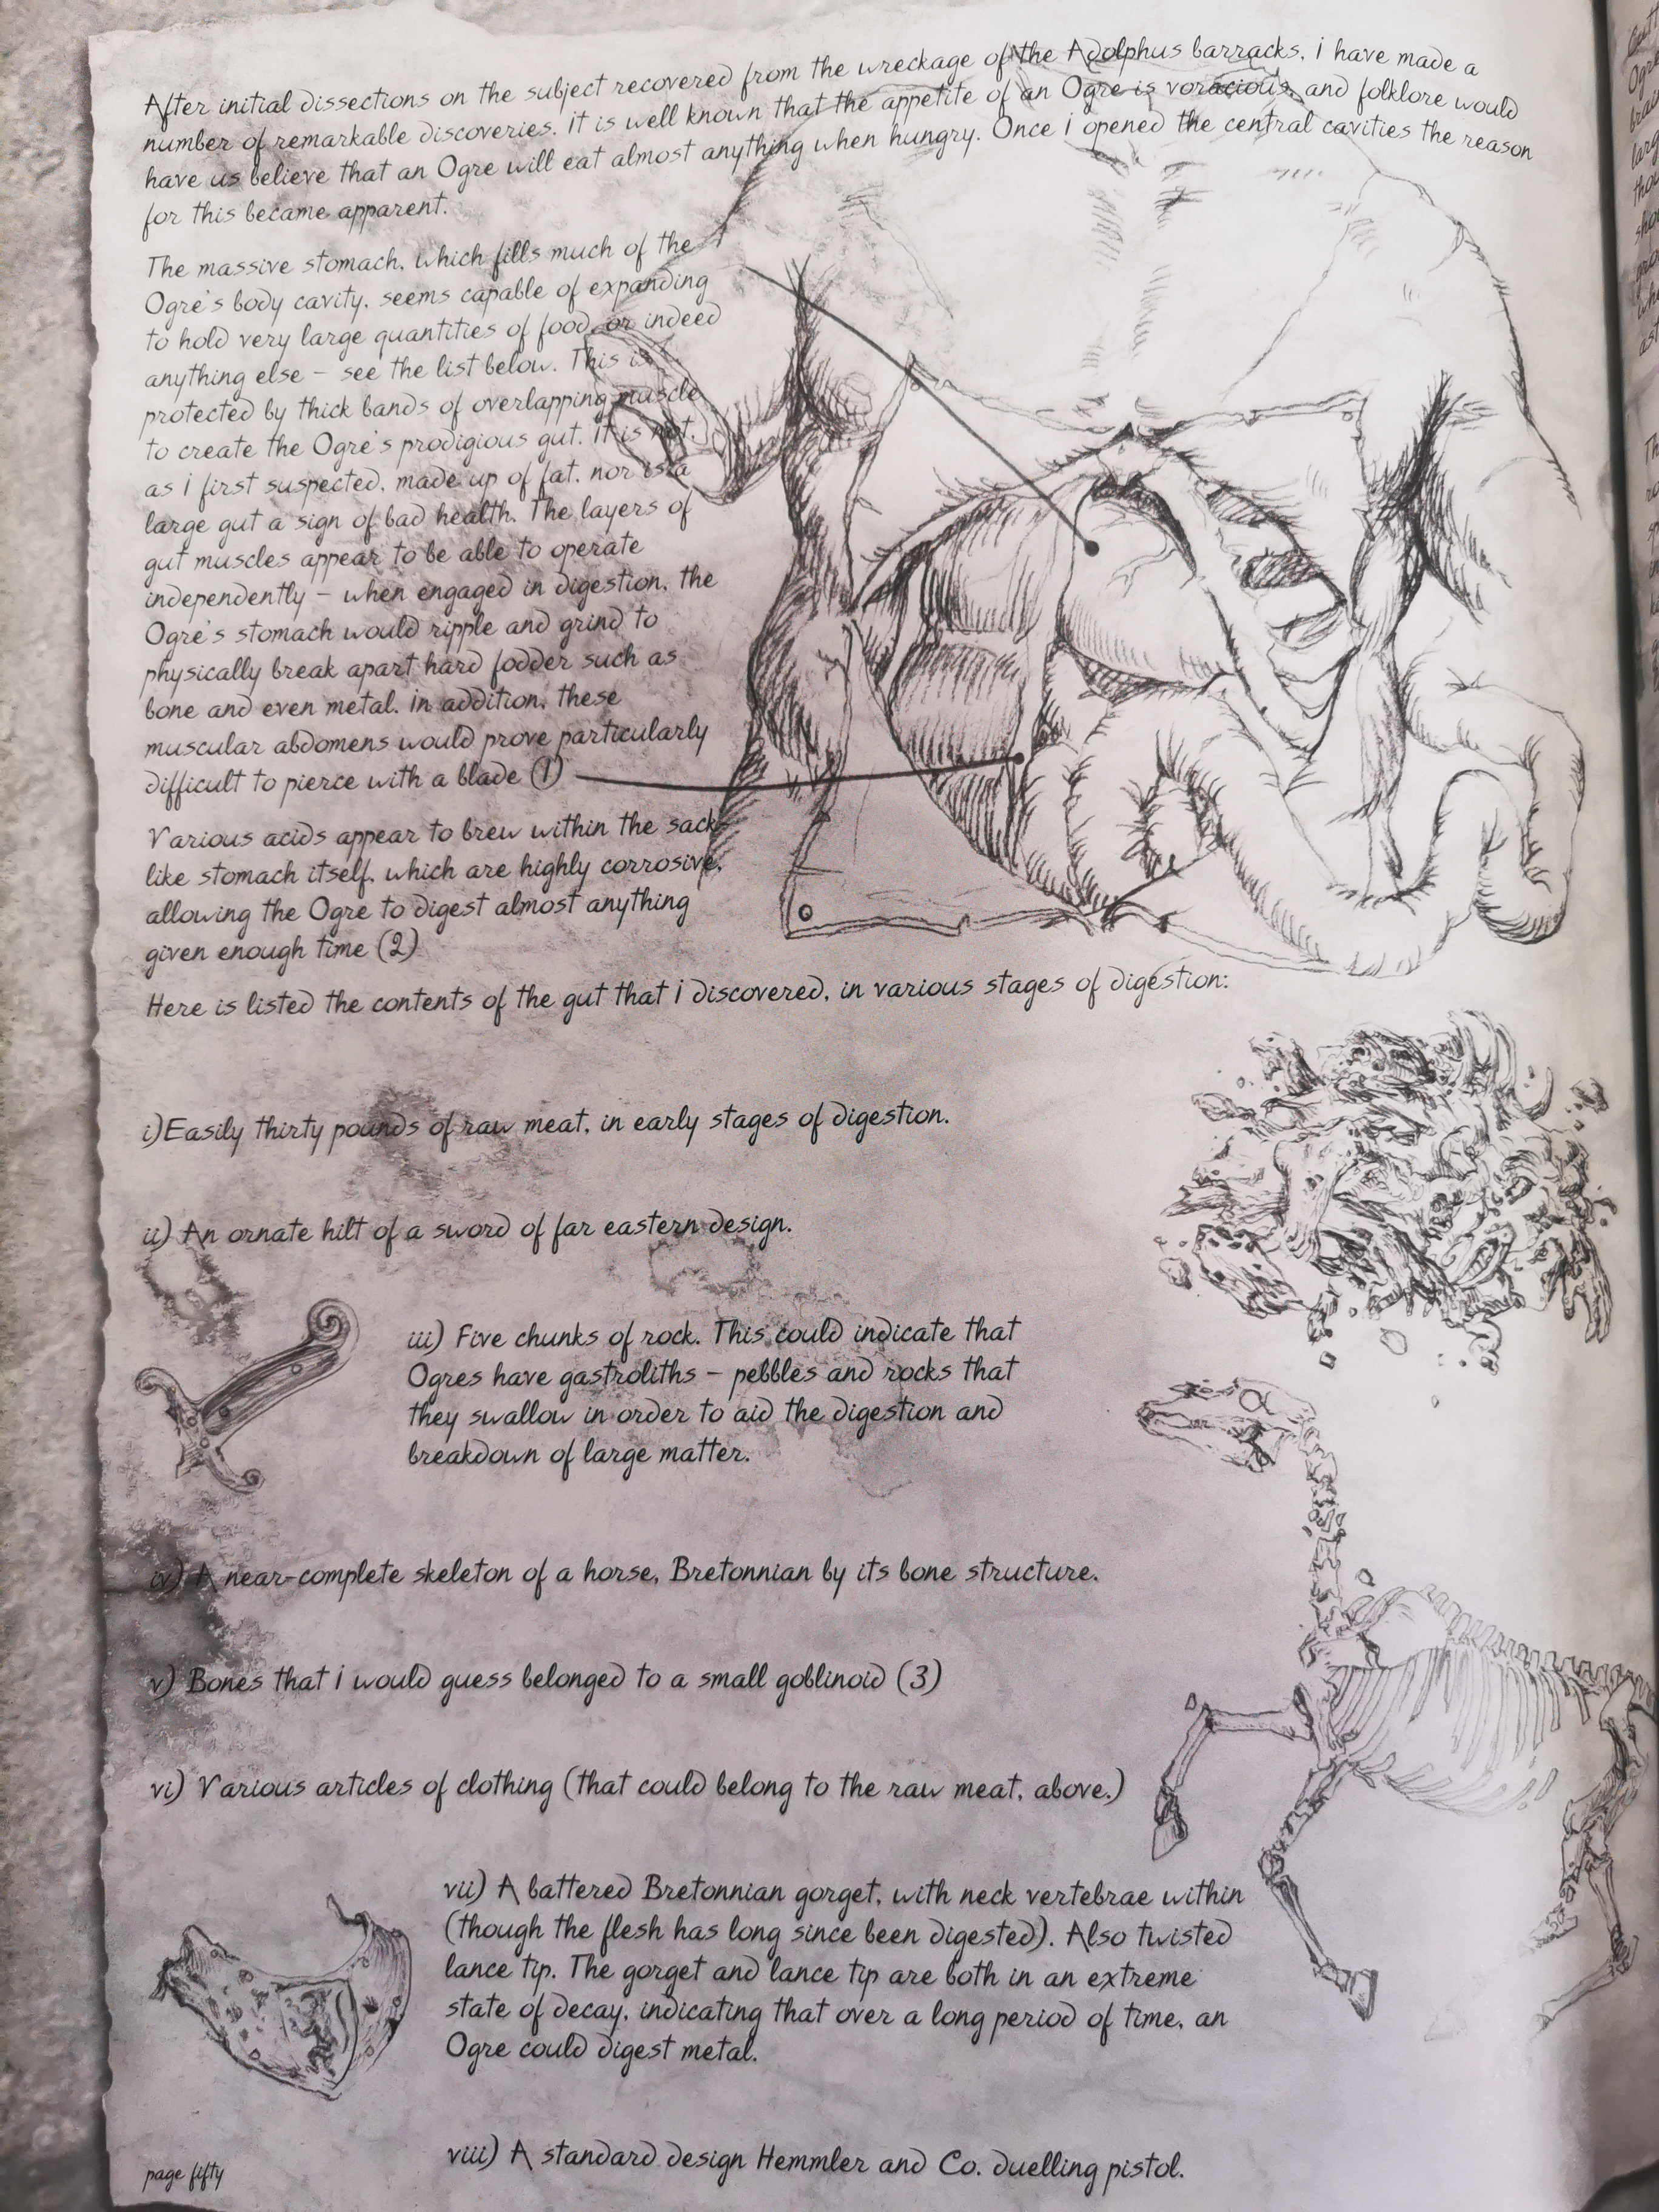 After initial dissections on the subject recovered from the wreckage of the Adolphus barracks, i have made a
number of remarkable discoveries. it is well known that the appetite of an Ogre is voracious, and folklore would
have us believe that an Ogre will eat almost anything when hungry. Once i opened the central cavities the reason
for this became apparent.
The massive stomach, which fills much of the
Ogre's body cavity, seems capable of expanding
to hold very large quantities of food, or indeed
anything else – see the list below. This is
protected by thick bands of overlapping muscle
to create the Ogre's prodigious gut. it is not,
as i first suspected, made up of fat, nor is a
large gut a sign of bad health. The layers of
gut muscles appear to be able to operate
independently – when engaged in digestion, the
Ogre's stomach would ripple and grind to
physically break apart hard fodder such as
bone and even metal. in addition, these
muscular abdomens would prove particularly
difficult to pierce with a blade (1)
Various acids appear to brew within the sack-
like stomach itself, which are highly corrosive,
allowing the Ogre to digest almost anything
given enough time (2)
Here is listed the contents of the gut that i discovered, in various stages of digestion:
i) Easily thirty pounds of raw meat, in early stages of digestion.
ii) An ornate hilt of a sword of far eastern design.
iii) Five chunks of rock. This could indicate that
Ogres have gastroliths – pebbles and rocks that
they swallow in order to aid the digestion and
breakdown of large matter.
iv) A near-complete skeleton of a horse, Bretonnian by its bone structure.
v) Bones that i would guess belonged to a small goblinoid (3)
vi) Various articles of clothing (that could belong to the raw meat, above.)
vii) A battered Bretonnian gorget, with neck vertebrae within
(though the flesh has long since been digested). Also twisted
lance tip. The gorget and lance tip are both in an extreme
state of decay, indicating that over a long period of time, an
Ogre could digest metal.
viii) A standard design Hemmler and Co. duelling pistol.
page fifty